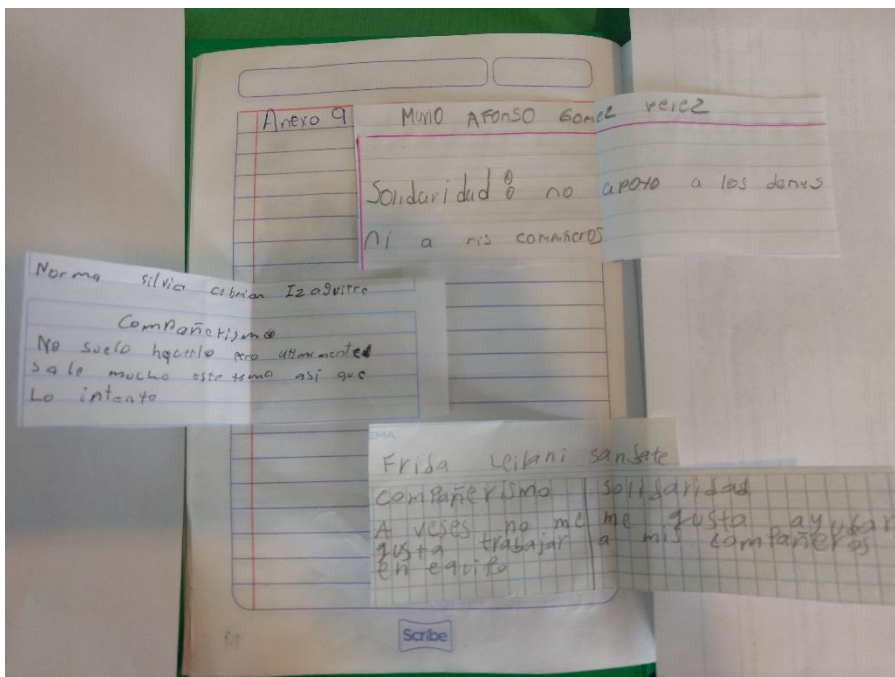 Anexo 9
MVriO AFonso Gomez verez
Solidaridad: no apoyo a los demas
ni a mis compañeros
Norma Silvia cebrian Izaguirre
Compañerismo
No suelo hacerlo pero ultimamente
sale mucho este tema así que
Lo intento
EMA
Frida Leilani sansate
compañerismo solidaridad
A veses no me me gusta ayudar
gusta trabajar a mis compañeros
en equipo
Scribe